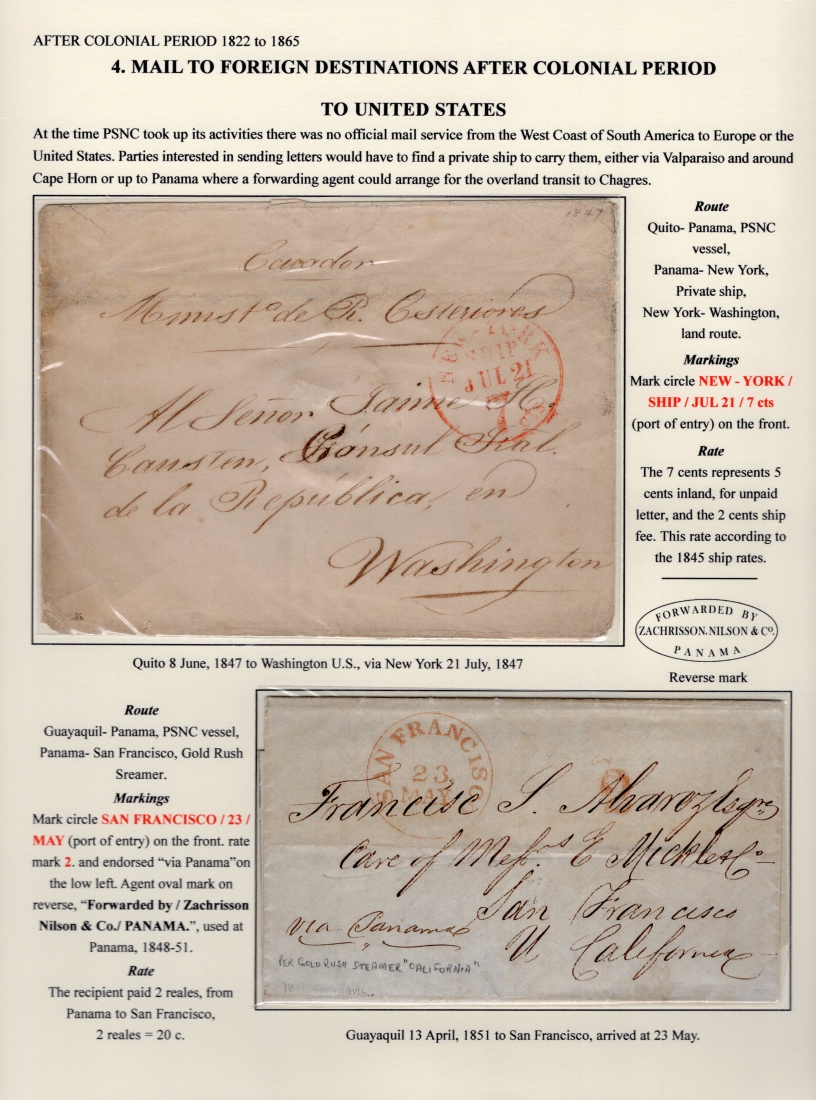 AFTER COLONIAL PERIOD 1822 to 1865
4. MAIL TO FOREIGN DESTINATIONS AFTER COLONIAL PERIOD
TO UNITED STATES
At the time PSNC took up its activities there was no official mail service from the West Coast of South America to Europe or the
United States. Parties interested in sending letters would have to find a private ship to carry them, either via Valparaiso and around
Cape Horn or up to Panama where a forwarding agent could arrange for the overland transit to Chagres.
1847
Ecuador
Minist.º de R. Esteriores
NEW-YORK
SHIP
JUL 21
7 cts
Al Señor Jaime H.
Causten, Cónsul Jral.
de la República, en
Washington
Route
Quito- Panama, PSNC
vessel,
Panama- New York,
Private ship,
New York- Washington,
land route.
Markings
Mark circle NEW - YORK /
SHIP / JUL 21 / 7 cts
(port of entry) on the front.
Rate
The 7 cents represents 5
cents inland, for unpaid
letter, and the 2 cents ship
fee. This rate according to
the 1845 ship rates.
FORWARDED BY
ZACHRISSON.NILSON & Co.
PANAMA
Reverse mark
Quito 8 June, 1847 to Washington U.S., via New York 21 July, 1847
Route
Guayaquil- Panama, PSNC vessel,
Panama- San Francisco, Gold Rush
Sreamer.
Markings
Mark circle SAN FRANCISCO / 23 /
MAY (port of entry) on the front. rate
mark 2. and endorsed “via Panama”on
the low left. Agent oval mark on
reverse, “Forwarded by / Zachrisson
Nilson & Co./ PANAMA.”, used at
Panama, 1848-51.
Rate
The recipient paid 2 reales, from
Panama to San Francisco,
2 reales = 20 c.
SAN FRANCISCO
23
MAY
Francisc S. Alvarez Esqre
Care of Messrs E Mickle & Co
San Francisco
via Panama
U California
PER GOLD RUSH STEAMER "CALIFORNIA"
Guayaquil 13 April, 1851 to San Francisco, arrived at 23 May.